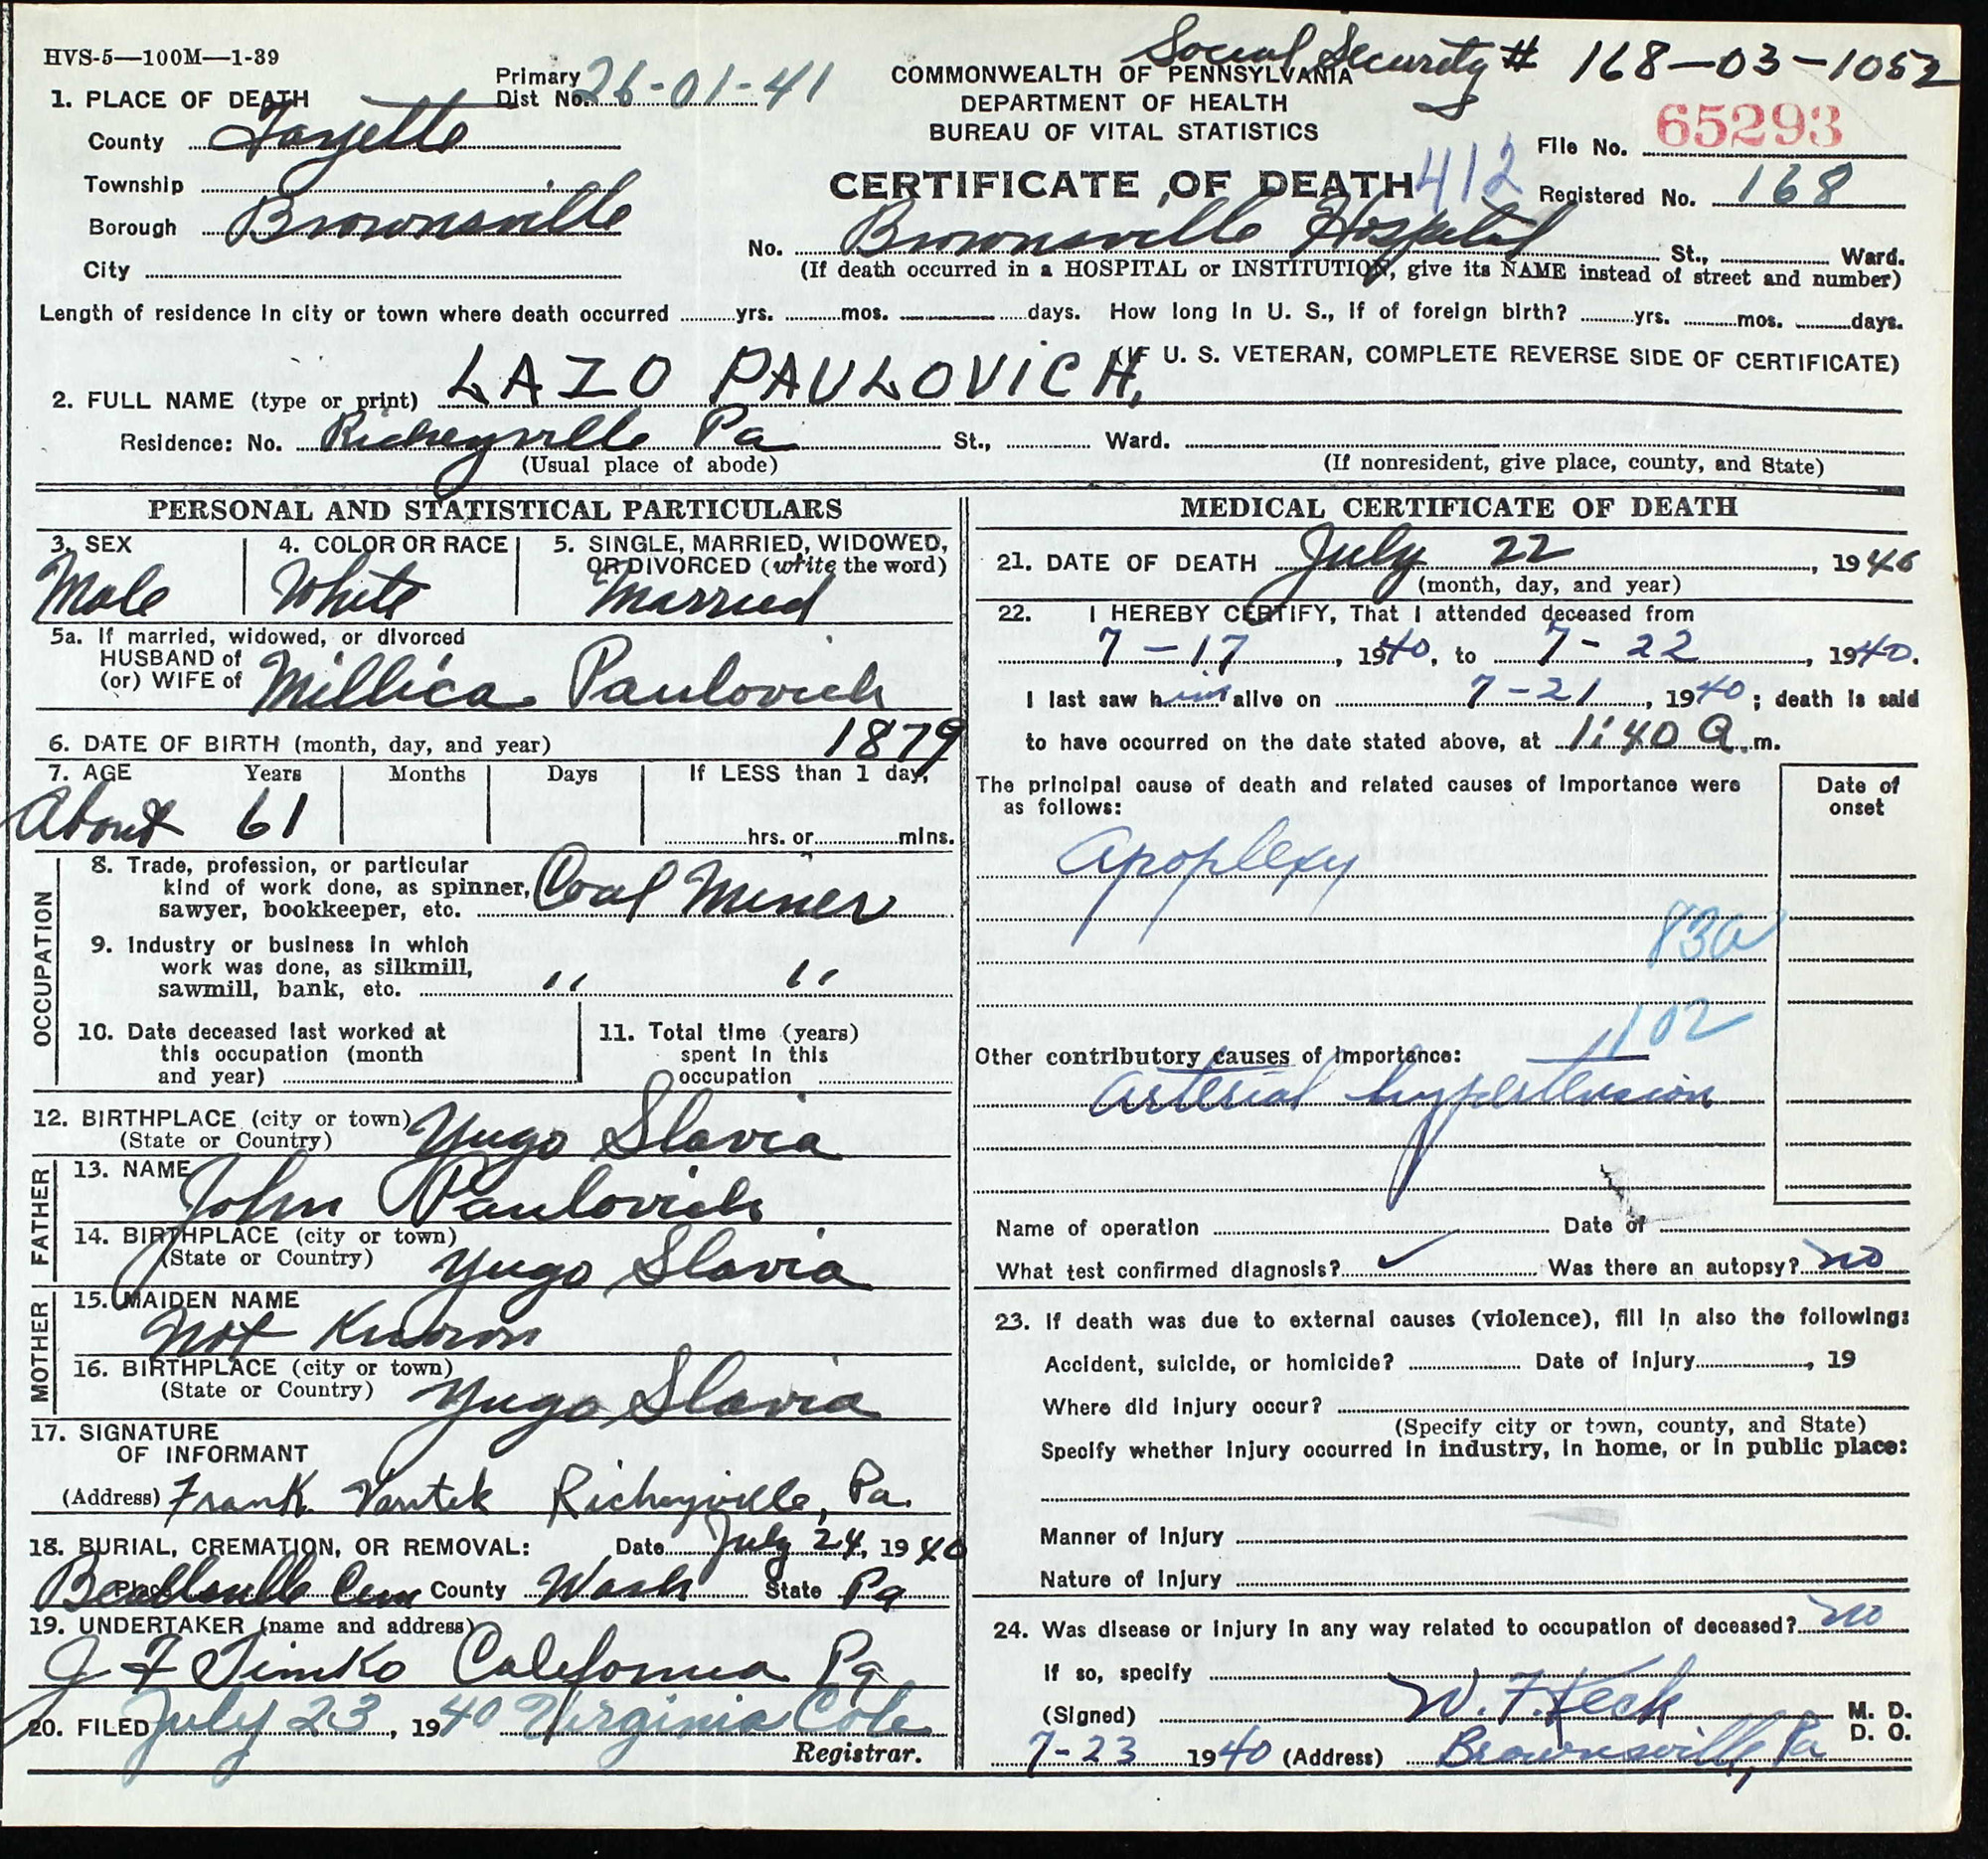 HVS-5—100M—1-39
Social Security # 168-03-1052
Primary Dist No. 26-01-41
COMMONWEALTH OF PENNSYLVANIA
DEPARTMENT OF HEALTH
BUREAU OF VITAL STATISTICS
File No. 65293
CERTIFICATE OF DEATH 412
Registered No. 168
1. PLACE OF DEATH
County Fayette
Township
Borough Brownsville
City
No. Brownsville Hospital St., Ward.
(If death occurred in a HOSPITAL or INSTITUTION, give its NAME instead of street and number)
Length of residence in city or town where death occurred yrs. mos. days. How long in U. S., if of foreign birth? yrs. mos. days.
(IF U. S. VETERAN, COMPLETE REVERSE SIDE OF CERTIFICATE)
2. FULL NAME (type or print) LAZO PAULOVICH,
Residence: No. Richeyville Pa St., Ward.
(Usual place of abode) (If nonresident, give place, county, and State)
PERSONAL AND STATISTICAL PARTICULARS
3. SEX Male
4. COLOR OR RACE White
5. SINGLE, MARRIED, WIDOWED, OR DIVORCED (write the word) Married
5a. If married, widowed, or divorced
HUSBAND of
(or) WIFE of Millica Paulovich
6. DATE OF BIRTH (month, day, and year) 1879
7. AGE Years Months Days If LESS than 1 day,
About 61 hrs. or mins.
OCCUPATION
8. Trade, profession, or particular
kind of work done, as spinner,
sawyer, bookkeeper, etc. Coal Miner
9. Industry or business in which
work was done, as silkmill,
sawmill, bank, etc. " "
10. Date deceased last worked at
this occupation (month
and year)
11. Total time (years)
spent in this
occupation
12. BIRTHPLACE (city or town)
(State or Country) Yugo Slavia
FATHER
13. NAME John Paulovich
14. BIRTHPLACE (city or town)
(State or Country) Yugo Slavia
MOTHER
15. MAIDEN NAME
Not Known
16. BIRTHPLACE (city or town)
(State or Country) Yugo Slavia
17. SIGNATURE
OF INFORMANT
(Address) Frank Richeyville, Pa.
18. BURIAL, CREMATION, OR REMOVAL: Date July 24, 1940
Place Beallsville Cem County Wash State Pa
19. UNDERTAKER (name and address)
J F Timko California Pa
20. FILED July 23, 1940 Virginia Cole
Registrar.
MEDICAL CERTIFICATE OF DEATH
21. DATE OF DEATH July 22, 1940
(month, day, and year)
22. I HEREBY CERTIFY, That I attended deceased from
7-17, 1940, to 7-22, 1940.
I last saw him alive on 7-21, 1940; death is said
to have occurred on the date stated above, at 1:40 A.m.
The principal cause of death and related causes of importance were
as follows:
Date of
onset
Apoplexy
83a
102
Other contributory causes of importance:
Arterial hypertension
Name of operation Date of
What test confirmed diagnosis? ✓ Was there an autopsy? no
23. If death was due to external causes (violence), fill in also the following:
Accident, suicide, or homicide? Date of injury, 19
Where did injury occur?
(Specify city or town, county, and State)
Specify whether injury occurred in industry, in home, or in public place:
Manner of injury
Nature of injury
24. Was disease or injury in any way related to occupation of deceased? no
If so, specify
(Signed) W. F. Keck M. D.
D. O.
7-23 1940 (Address) Brownsville, Pa